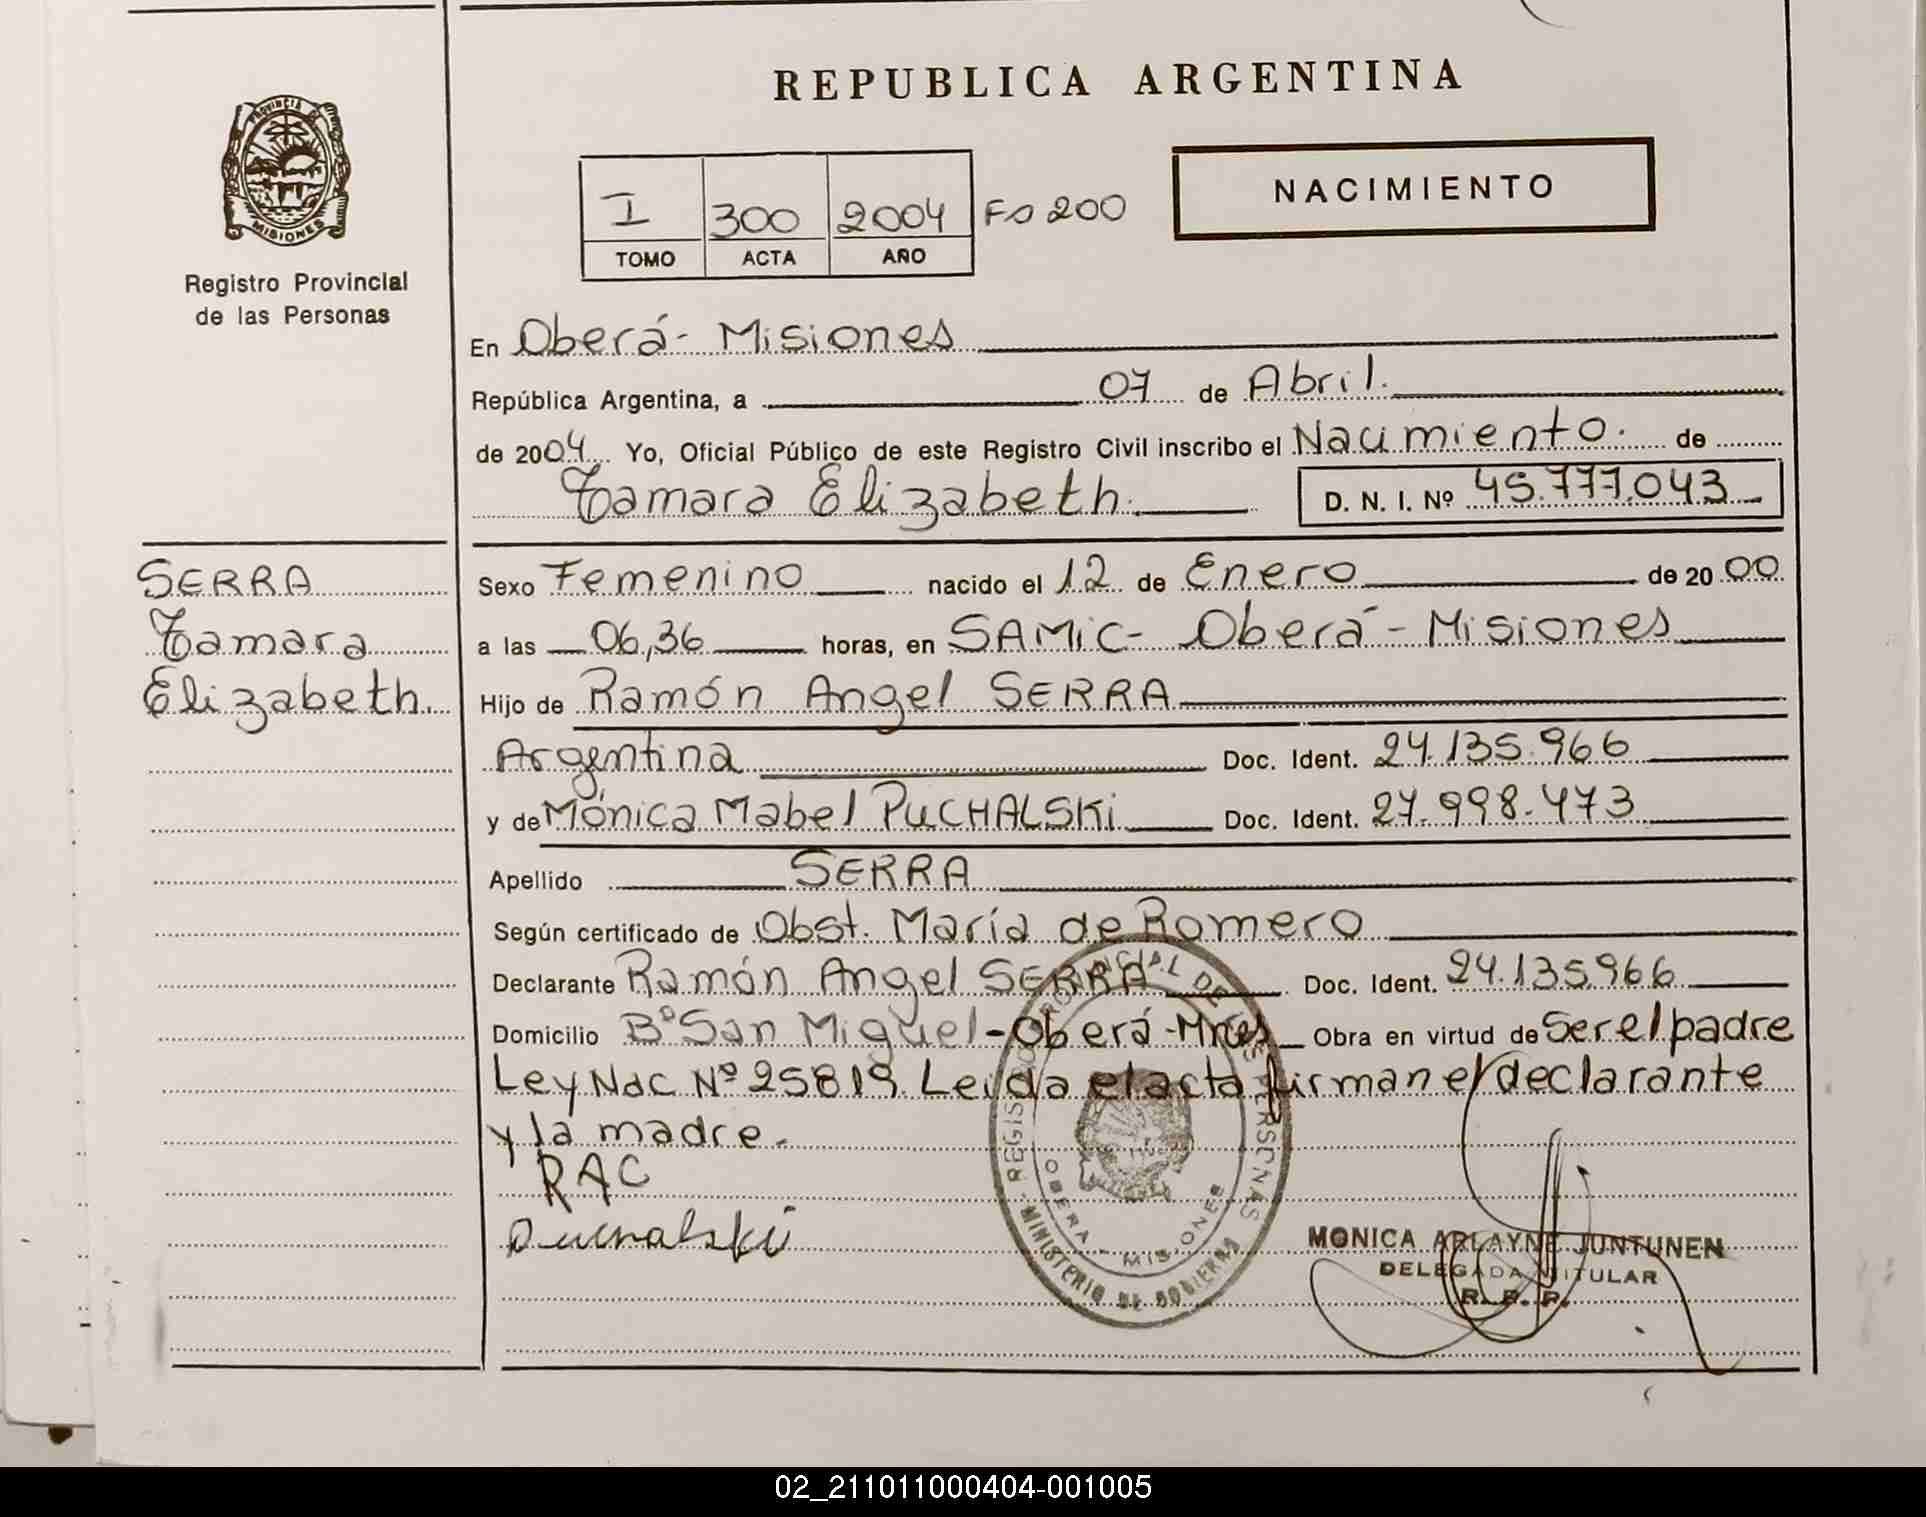 REPUBLICA ARGENTINA
PROVINCIA DE
MISIONES
Registro Provincial
de las Personas
I 300 2004 Fo 200
TOMO ACTA AÑO
NACIMIENTO
En Oberá - Misiones
República Argentina, a 07 de Abril.
de 2004. Yo, Oficial Público de este Registro Civil inscribo el Nacimiento. de
Tamara Elizabeth. D. N. I. Nº 45.777.043
SERRA
Tamara
Elizabeth.
Sexo Femenino nacido el 12 de Enero de 20 00
a las 06,36 horas, en SAMIC - Oberá - Misiones
Hijo de Ramón Angel SERRA
Argentina Doc. Ident. 24.135.966
y de Mónica Mabel PUCHALSKI Doc. Ident. 27.998.473
Apellido SERRA
Según certificado de Obst. María de Romero
Declarante Ramón Angel SERRA Doc. Ident. 24.135966
Domicilio Bº San Miguel - Oberá - Mnes Obra en virtud de Ser el padre
Ley Nac Nº 25819. Leida el acta firman el declarante
y la madre.
RAC
REGISTRO PROVINCIAL DE LAS PERSONAS
OBERA - MISIONES
MINISTERIO DE GOBIERNO
MONICA ARLAYNE JUNTUNEN
DELEGADA TITULAR
R. P. P.
02_211011000404-001005